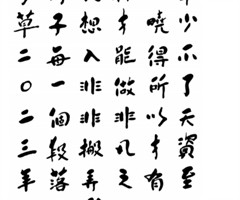 少不了天資至
曉得所以才有
才能做非凡之
想入非非搬弄
子每一個段落
草二〇二三年